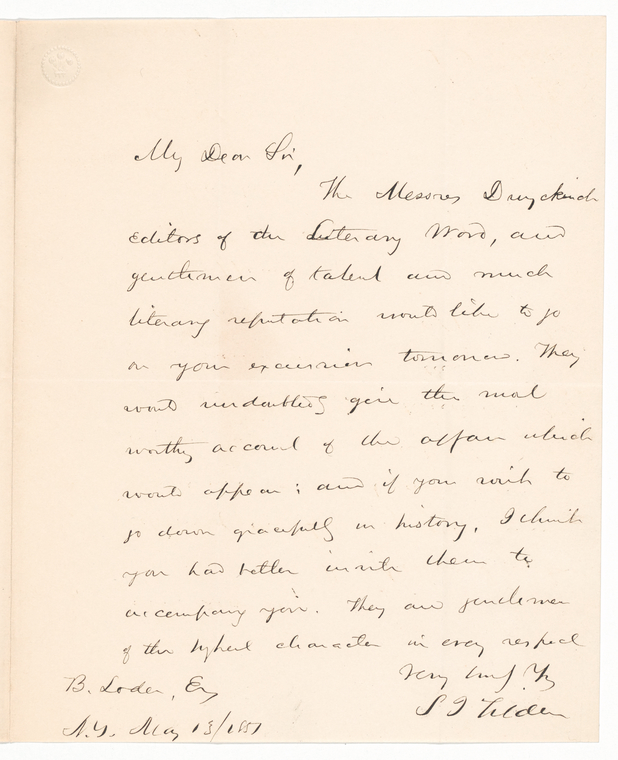 My Dear Sir,
The Messrs Duyckinck
editors of the Literary World, and
gentlemen of talent and much
literary reputation would like to go
on your excursion tomorrow. They
would undoubtedly give the most
worthy account of the affair which
would appear; and if you wish to
go down gracefully in history, I think
you had better invite them to
accompany you. They are gentlemen
of the highest character in every respect
Very truly Yrs
S J Tilden
B. Loder, Esq
N.Y. May 13/1851